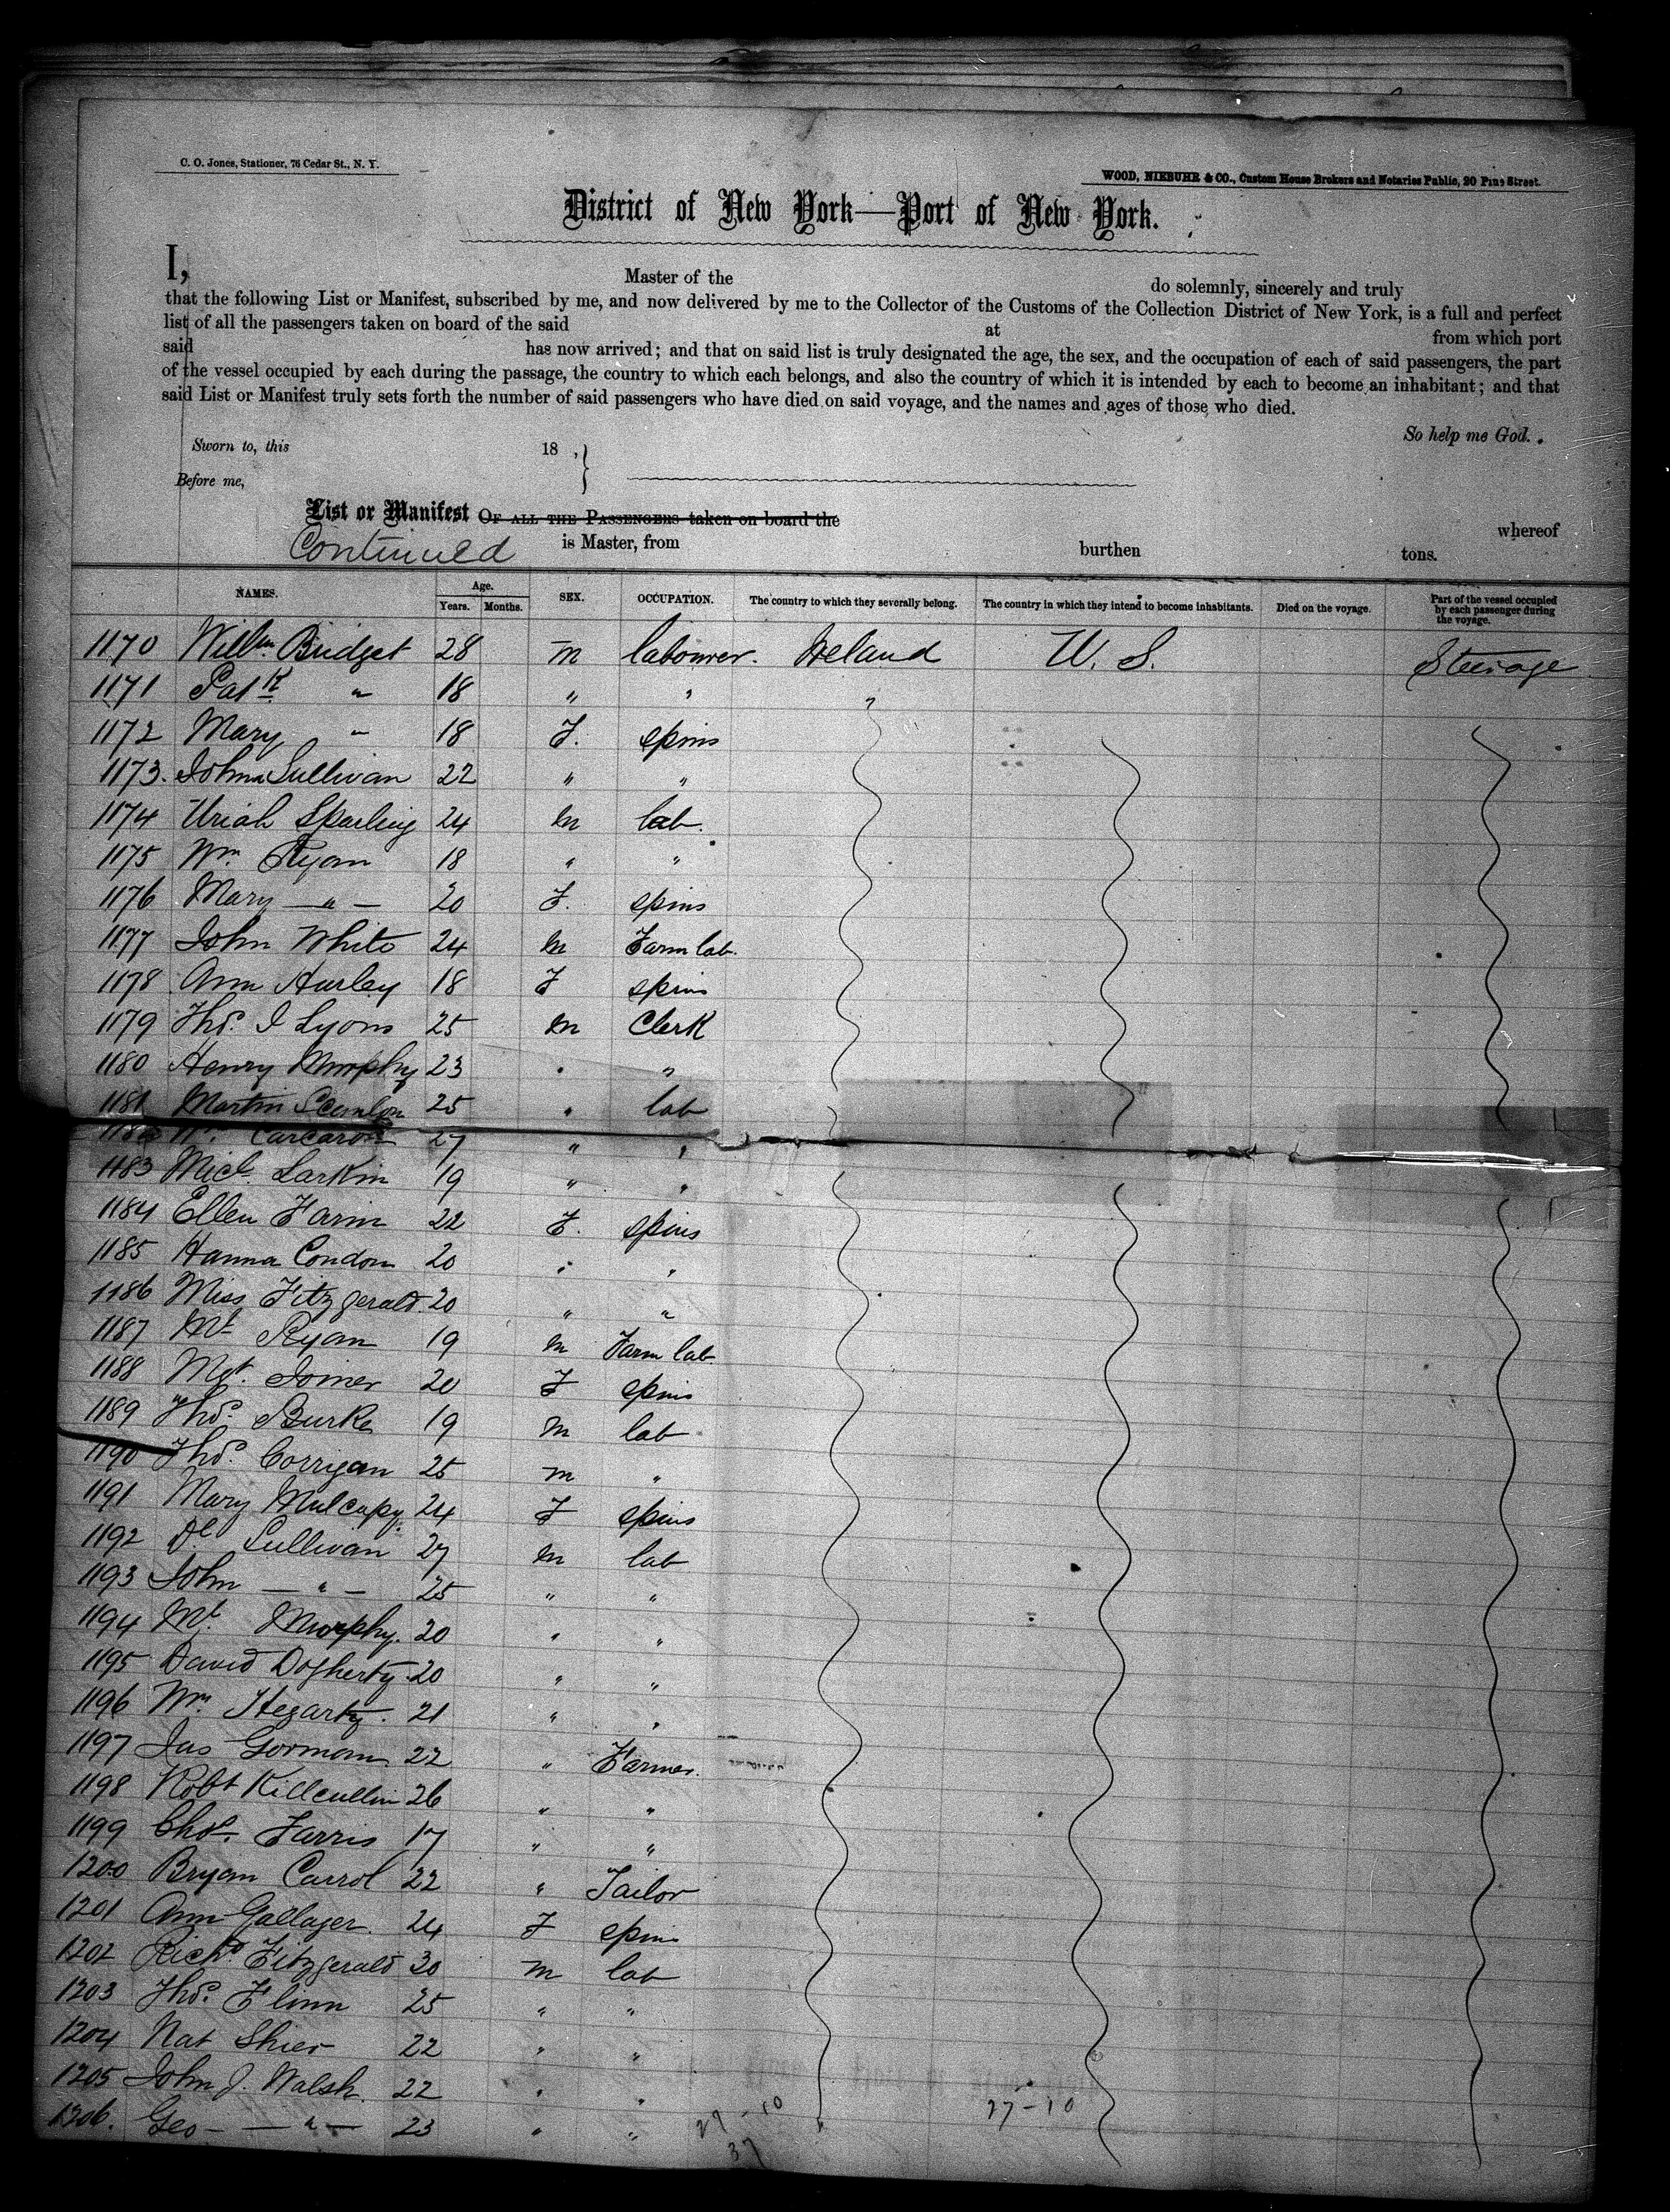 C. O. Jones, Stationer, 76 Cedar St., N. Y.
WOOD, NIEBUHR & CO., Custom House Brokers and Notaries Public, 20 Pine Street.
District of New York—Port of New York.
I, Master of the do solemnly, sincerely and truly
that the following List or Manifest, subscribed by me, and now delivered by me to the Collector of the Customs of the Collection District of New York, is a full and perfect
list of all the passengers taken on board of the said at from which port
said has now arrived; and that on said list is truly designated the age, the sex, and the occupation of each of said passengers, the part
of the vessel occupied by each during the passage, the country to which each belongs, and also the country of which it is intended by each to become an inhabitant; and that
said List or Manifest truly sets forth the number of said passengers who have died on said voyage, and the names and ages of those who died.
So help me God.
Sworn to, this 18 ,
Before me,
List or Manifest OF ALL THE PASSENGERS taken on board the whereof
Continued is Master, from burthen tons.
NAMES. Age. Years. Months. SEX. OCCUPATION. The country to which they severally belong. The country in which they intend to become inhabitants. Died on the voyage. Part of the vessel occupied by each passenger during the voyage.
1170 Willm Bridget 28 m labourer. Ireland U. S. Steerage
1171 Patk " 18 " " "
1172 Mary " 18 F. spins
1173. Johna Sullivan 22 " "
1174 Uriah Sparling 24 m lab.
1175 Wm Ryan 18 " "
1176 Mary — " — 20 F. spins
1177 John White 24 m Farm lab.
1178 Ann Hurley 18 F spins
1179 Thos. I Lyons 25 m Clerk
1180 Henry Murphy 23 " "
1181 Martin Scanlon 25 " lab
1182 Wm 27 " "
1183 Micl. Larkin 19 " "
1184 Ellen Farin 22 F. spins
1185 Hanna Condon 20 " "
1186 Miss Fitzgerald. 20 " "
1187 Mt Ryan 19 m Farm lab
1188 Mgt. Joiner 20 F spins
1189 Thos. Burke 19 m lab
1190 Thos. Corrigan 25 m "
1191 Mary Mulcapy. 24 F spins
1192 Dl Sullivan 27 m lab
1193 John — " — 25 " "
1194 Mt. Murphy. 20 " "
1195 David Dogherty. 20 " "
1196 Wm. Hegarty. 21 " "
1197 Jas Gorman 22 " Farmer.
1198 Robt Killcullin 26 " "
1199 Chas. Farris 17 " "
1200 Bryan Carrol 22 " Tailor
1201 Ann Gallager. 24 F spins
1202 Richd. Fitzgerald 30 m lab
1203 Thos. Flinn 25 " "
1204 Nat Shier 22 " "
1205 John J. Walsh. 22 " "
1206. Geo — " — 23 " "
27-10 27-10
37